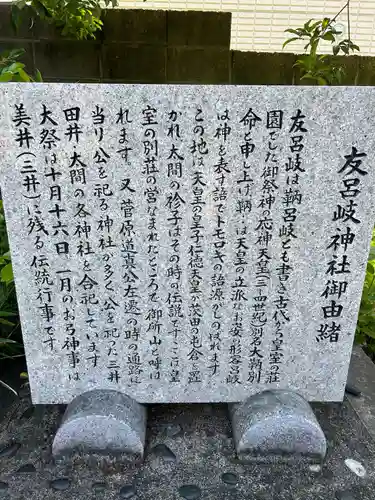 友呂岐神社御由緒
友呂岐は鞆呂岐とも書き古代から皇室の荘
園でした御祭神の応神天皇三一四世紀別名大鞆別
命と申し上げ鞆は天皇の立派なお姿の形容呂岐
は神を表す語でトモロキの語源がしのばれます
この地は天皇の皇子仁徳天皇が茨田の屯倉を置
かれ太間の衫子はその時の伝説ですここは皇
室の別荘の営なまれたところで御所山と呼は
れます。又菅原道真公左遷の時の通路に
当り公を祀る神社が多く公を祀った三井
田井太間の各神社を合祀しています
大祭は十月十六日一月のお弓神事は
美井(三井)に残る伝統行事です